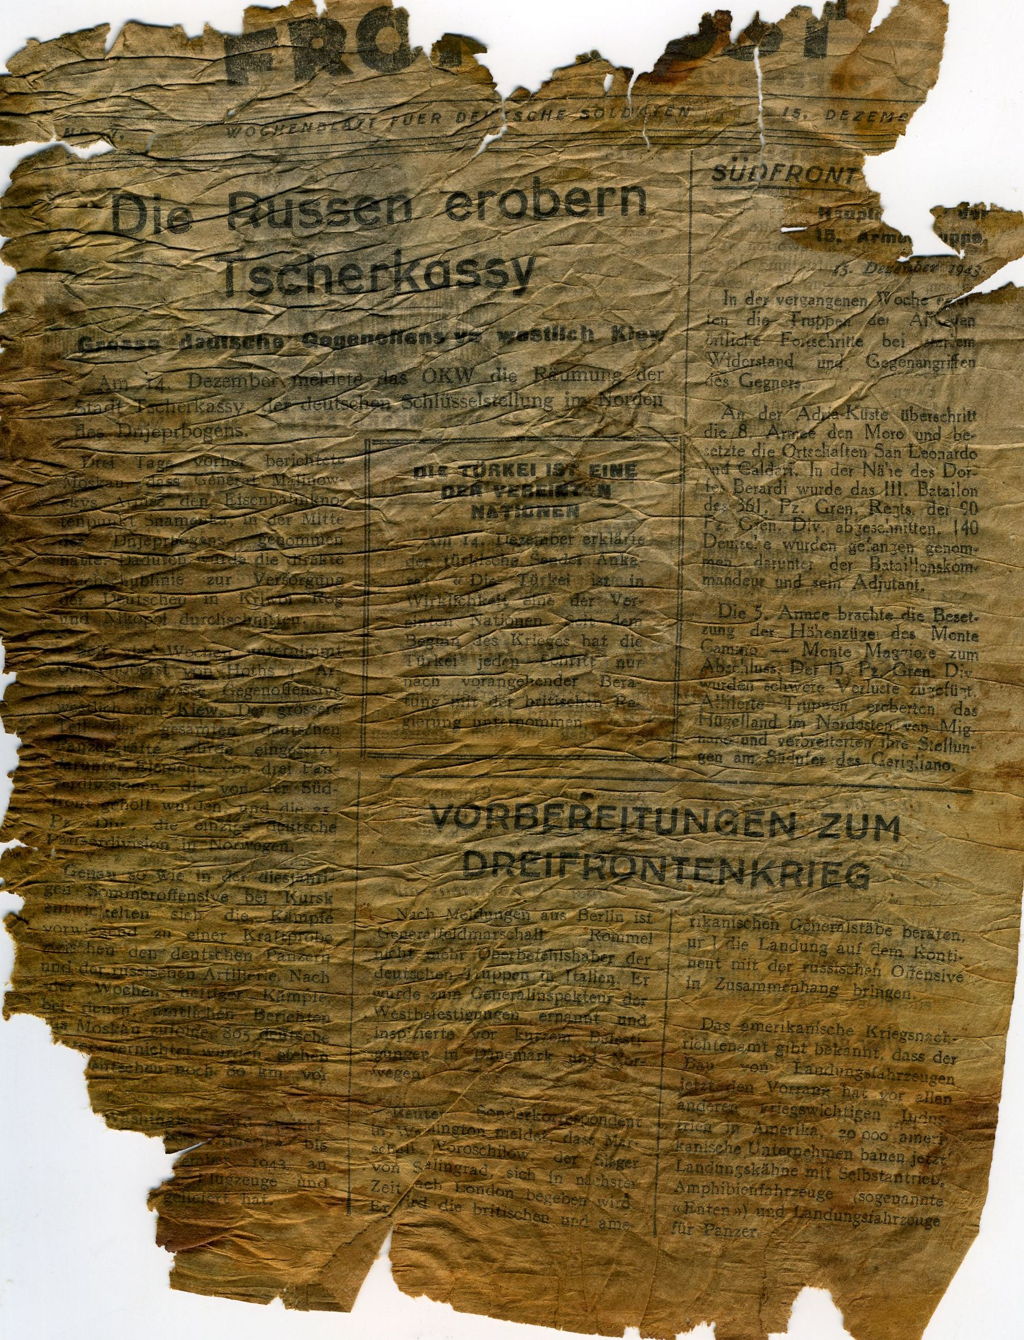 FRO
WOCHENBLATT FUER DEUTSCHE SOLDATEN
15. DEZEMB
Die Russen erobern
Tscherkassy
Grosse deutsche Gegenoffensive westlich Kiew
Am 14. Dezember meldete das OKW die Räumung der
Stadt Tscherkassy, der deutschen Schlüsselstellung im Norden
des Dnjeprbogens.
Drei Tage vorher berichtete
Moskau, dass General Malinow-
skys Armee den Eisenbahnkno-
tenpunkt Snamenka, in der Mitte
des Dnjeprbogens, genommen
hatte. Dadurch wurde die direkte
Nachschublinie zur Versorgung
der Deutschen in Kriwoi Rog
und Nikopol durchschnitten.
Woche unternimmt
von Hoths Ar-
grosse Gegenoffensive
westlich von Kiew. Der grössere
gesamten deutschen
Panzerkräfte wurde eingesetzt
darunter Elemente von drei Pan-
zerdivisionen, die von der Süd-
front geholt wurden, und die 25.
Pz. Div., die einzige deutsche
Panzerdivision in Norwegen.
Genau so wie in der diesjähri-
gen Sommeroffensive bei Kursk
entwickelten sich die Kämpfe
vorwiegend zu einer Kraftprobe
zwischen den deutschen Panzern
und der russischen Artillerie. Nach
Wochen heftiger Kämpfe,
bei denen, amtlichen Berichten
aus Moskau zufolge 805 deutsche
vernichtet wurden, stehen
Deutschen noch 60 km. vor
bis
1943, an
Flugzeuge und
geliefert hat.
DIE TÜRKEI IST EINE
DER VEREINTEN
NATIONEN
Am 14. Dezember erklärte
der türkische Sender Anka-
ra: «Die Türkei ist in
Wirklichkeit eine der Ver-
einten Nationen. Seit dem
Beginn des Krieges hat die
Türkei jeden Schritt nur
nach vorangehender Bera-
tung mit der britischen Re-
gierung unternommen
SÜDFRONT
15. Armeegruppe,
15. Dezember 1943.
In der vergangenen Woche
ten die Truppen der Armeen
örtliche Fortschritte bei
Widerstand und Gegenangriffen
des Gegners.
An der Adria-Küste überschritt
die 8. Armee den Moro und be-
setzte die Ortschaften San Leonardo
und Caldari. In der Nähe des Dor-
fes Berardi wurde das III. Bataillon
des 361. Pz. Gren. Regts. der 90
Pz. Gren. Div. abgeschnitten. 140
Deutsche wurden gefangen genom-
men, darunter der Bataillonskom-
mandeur und sein Adjutant.
Die 5. Armee brachte die Beset-
zung der Höhenzüge des Monte
Camino — Monte Maggiore zum
Abschluss. Der 15. Pz. Gren. Div.
wurden schwere Verluste zugefügt.
Alliierte Truppen eroberten das
Hügelland im Nordosten von Mig-
nano und verbreiterten ihre Stellun-
gen am Südufer des Garigliano.
VORBEREITUNGEN ZUM
DREIFRONTENKRIEG
Nach Meldungen aus Berlin ist
Generalfeldmarschall Rommel
nicht mehr Oberbefehlshaber der
deutschen Truppen in Italien. Er
wurde zum Generalinspekteur der
Westbefestigungen ernannt und
inspizierte vor kurzem Befesti-
gungen in Dänemark und Nor-
wegen.
Reuters Sonderkorrespondent
in Washington meldet, dass Mar-
schall Woroschilow, der Sieger
von Stalingrad, sich in nächster
Zeit nach London begeben wird.
Er wird die britischen und ame-
rikanischen Generalstäbe beraten,
und die Landung auf dem Konti-
nent mit der russischen Offensive
in Zusammenhang bringen.
Das amerikanische Kriegsnach-
richtenamt gibt bekannt, dass der
Bau von Landungsfahrzeugen
jetzt den Vorrang hat vor allen
anderen kriegswichtigen Indus-
trien in Amerika. 20 000 ameri-
kanische Unternehmen bauen jetzt
Landungskähne mit Selbstantrieb,
Amphibienfahrzeuge (sogenannte
«Enten») und Landungsfahrzeuge
für Panzer.